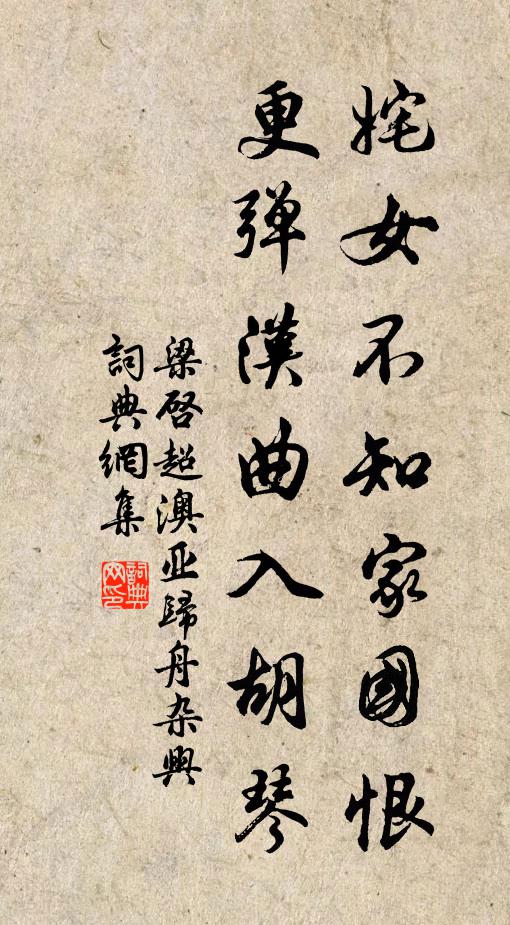 姹女不知家國恨
更弹漢曲入胡琴
梁啓超澳亚歸舟杂興
詞典網集
詞典网印